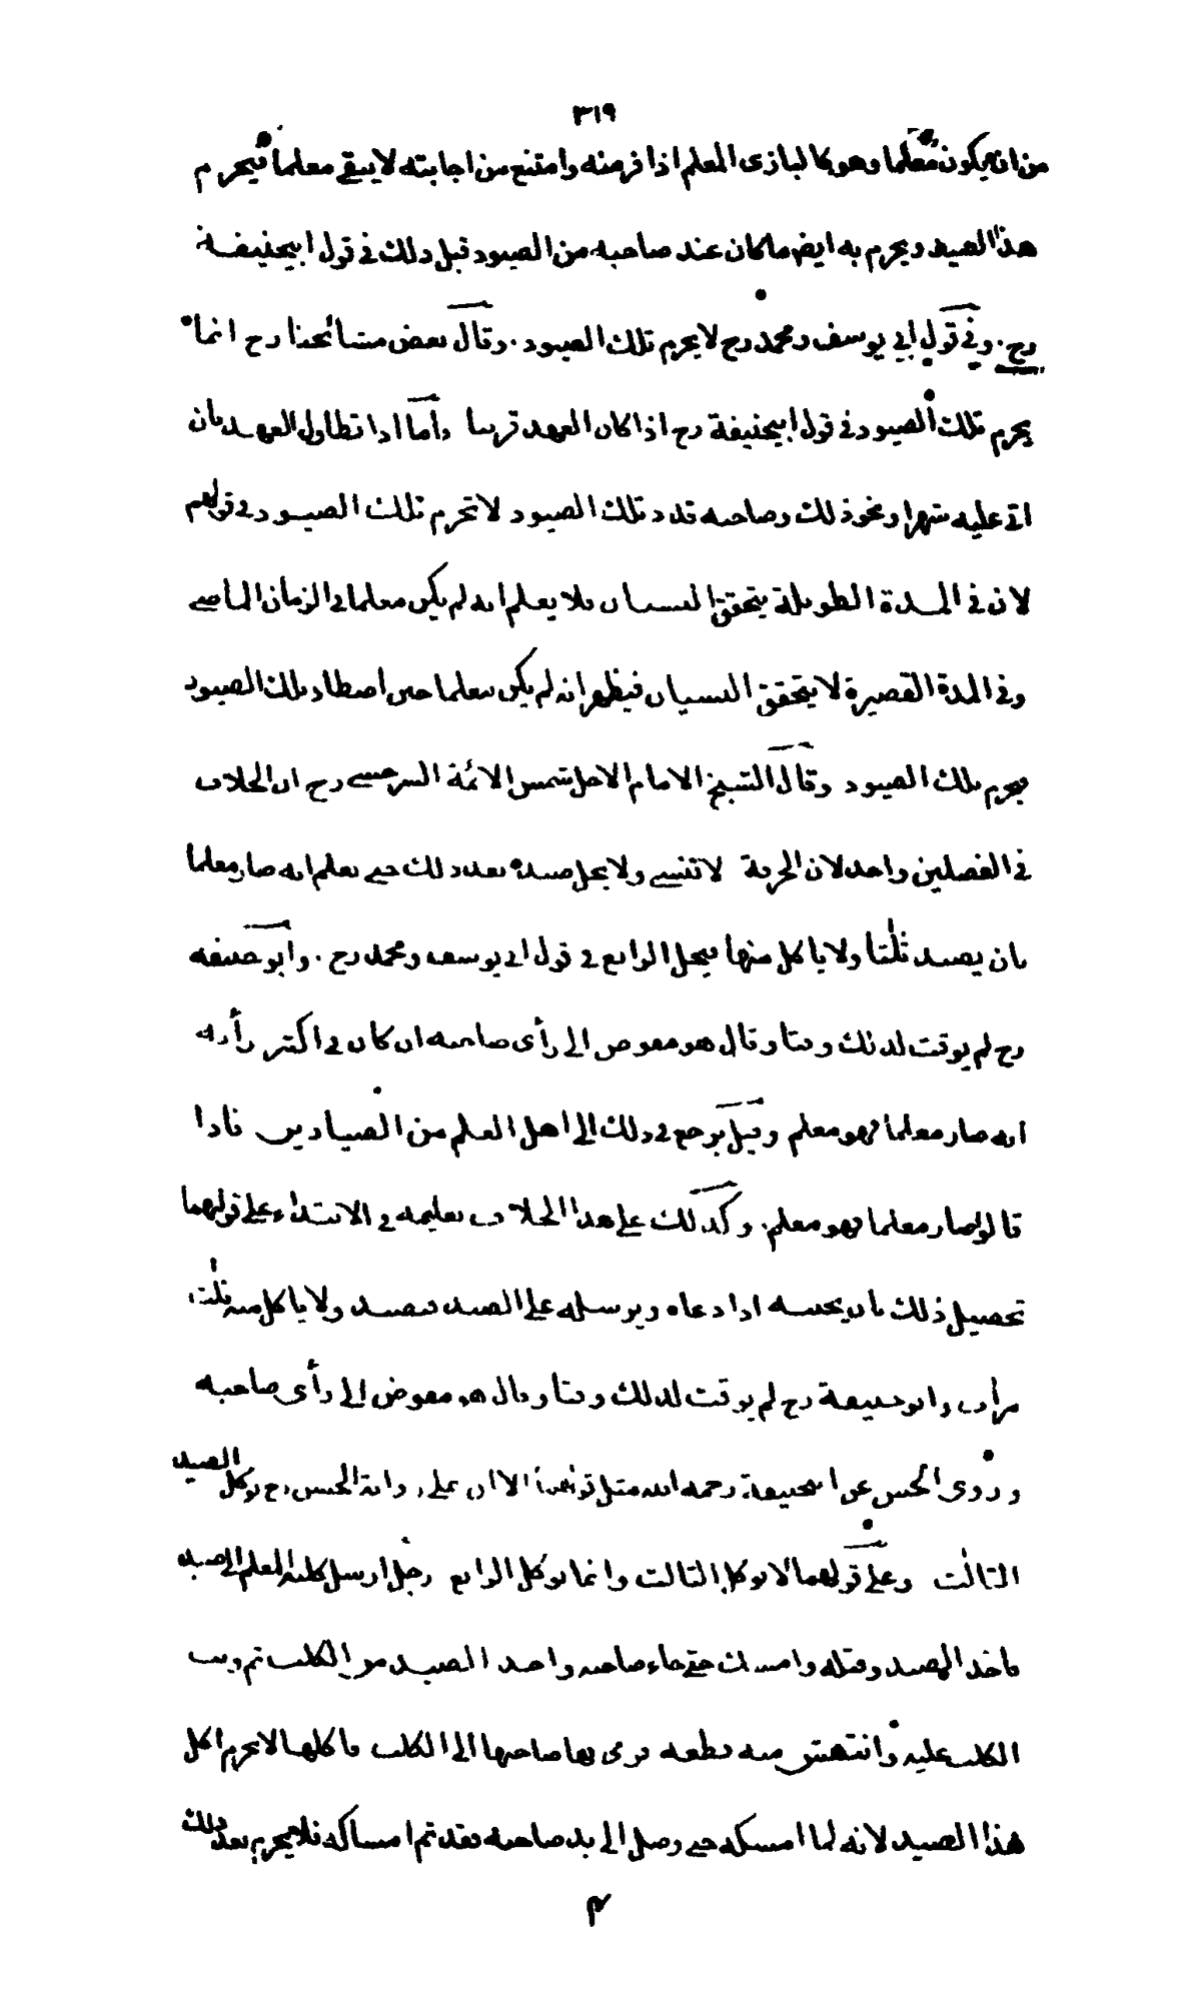 ٣١٩
من ان يكون معلما وهو كالبازى المعلم اذا فر منه وامتنع من اجابته لا يبقى معلما فيحرم
هذا الصيد ويحرم به ايضا ما كان عند صاحبه من الصيود قبل ذلك في قول ابيحنيفة
رح . وفي قول ابي يوسف ومحمد رح لا يحرم تلك الصيود . وقال بعض مشائخنا رح انما
يحرم تلك الصيود في قول ابيحنيفة رح اذا كان العهد قريبا واما اذا تطاول العهد بان
اتى عليه شهر او نحو ذلك وصاحبه قدد تلك الصيود لا تحرم تلك الصيود في قولهم
لان في المدة الطويلة يتحقق النسيان فلا يعلم انه لم يكن معلما في الزمان الماضي
وفي المدة القصيرة لا يتحقق النسيان فيظهر انه لم يكن معلما حين اصطاد تلك الصيود
فيحرم تلك الصيود وقال الشيخ الامام الاجل شمس الائمة السرخسي رح ان الخلاف
في الفصلين واحد لان الحرفة لا تنسى ولا يحل صيده بعد ذلك حتى يعلم انه صار معلما
بان يصيد ثلثا ولا ياكل منها فيحل الرابع في قول ابي يوسف ومحمد رح . وابو حنيفه
رح لم يوقت لذلك وقتا وقال هو مفوض الى رأى صاحبه ان كان في اكثر رأيه
انه صار معلما فهو معلم وقيل يرجع في ذلك الى اهل العلم من الصيادين فاذا
قالوا صار معلما فهو معلم . وكذلك على هذا الخلاف تعليمه في الابتداء على قولهما
تحصيل ذلك بان يجيبه اذا دعاه ويرسله على الصيد فيصيد ولا ياكل منه ثلث
مرات وابو حنيفة رح لم يوقت لذلك وقتا وقال هو مفوض الى رأى صاحبه
وروى الحسن عن ابيحنيفة رحمه الله مثل قولهما الا ان على رواية الحسن رح يوكل الصيد
الثالث وعلى قولهما لا يوكل الثالث وانما يوكل الرابع رجل ارسل كلبه المعلم الى صيد
فاخذ الصيد وقتله وامسك حتى جاء صاحبه واخذ الصيد من الكلب ثم وثب
الكلب عليه وانتهش منه قطعه فرمى بها صاحبها الى الكلب فاكلها لا يحرم اكل
هذا الصيد لانه لما امسكه حتى وصل الى يد صاحبه فقد تم امساكه فلا يحرم بعد ذلك